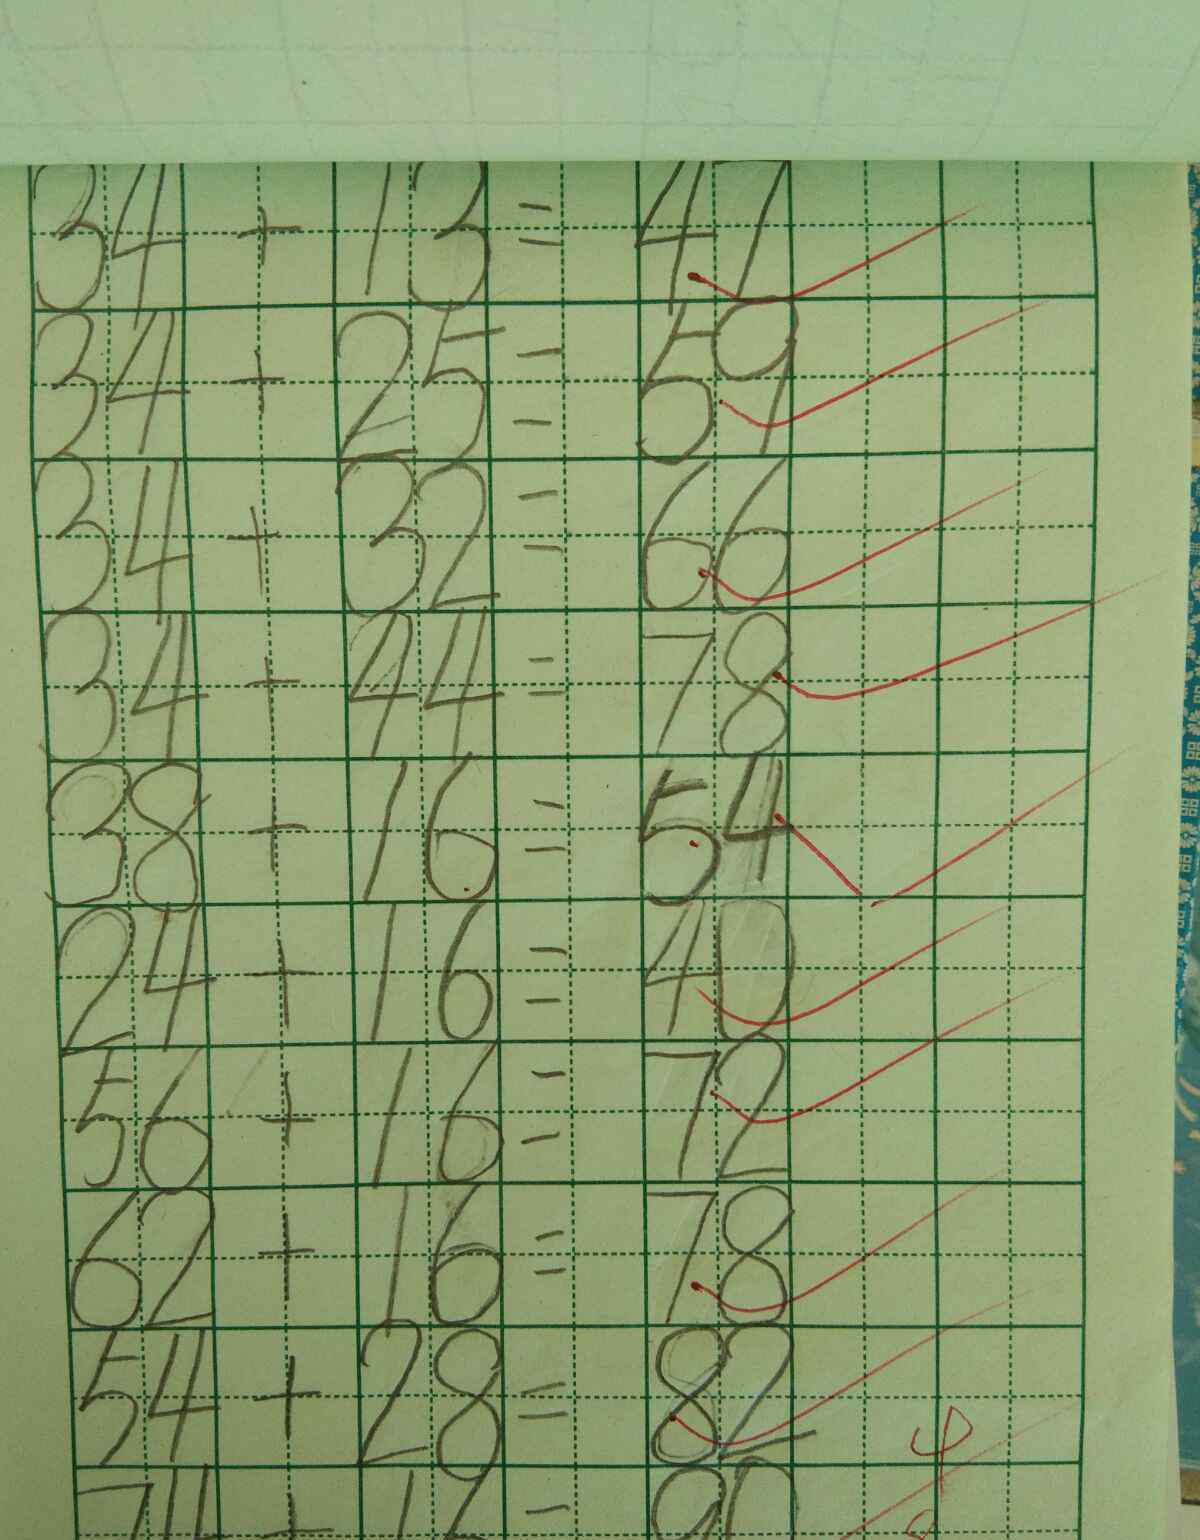 34 + 13 = 47
34 + 25 = 59
34 + 32 = 66
34 + 44 = 78
38 + 16 = 54
24 + 16 = 40
56 + 16 = 72
62 + 16 = 78
54 + 28 = 82
74 + = 90